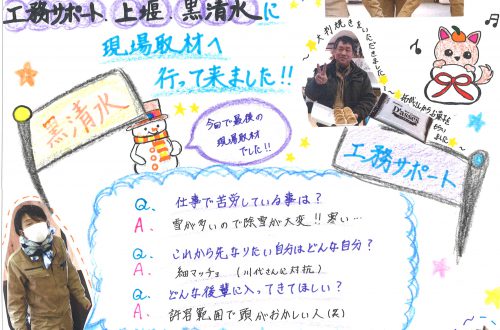 工務サポート、上堰、黒清水に
現場取材へ
行って来ました!!
～大判焼きをいただきました～
工務サポート
黒清水
今回で最後の
現場取材
でした!!
Q. 仕事で苦労している事は?
A. 雪が多いので除雪が大変!!寒い…
Q. これから先なりたい自分はどんな自分?
A. 細マッチョ (川代さんに対抗)
Q. どんな後輩に入ってきてほしい?
A. 許容範囲で頭がおかしい人(笑)